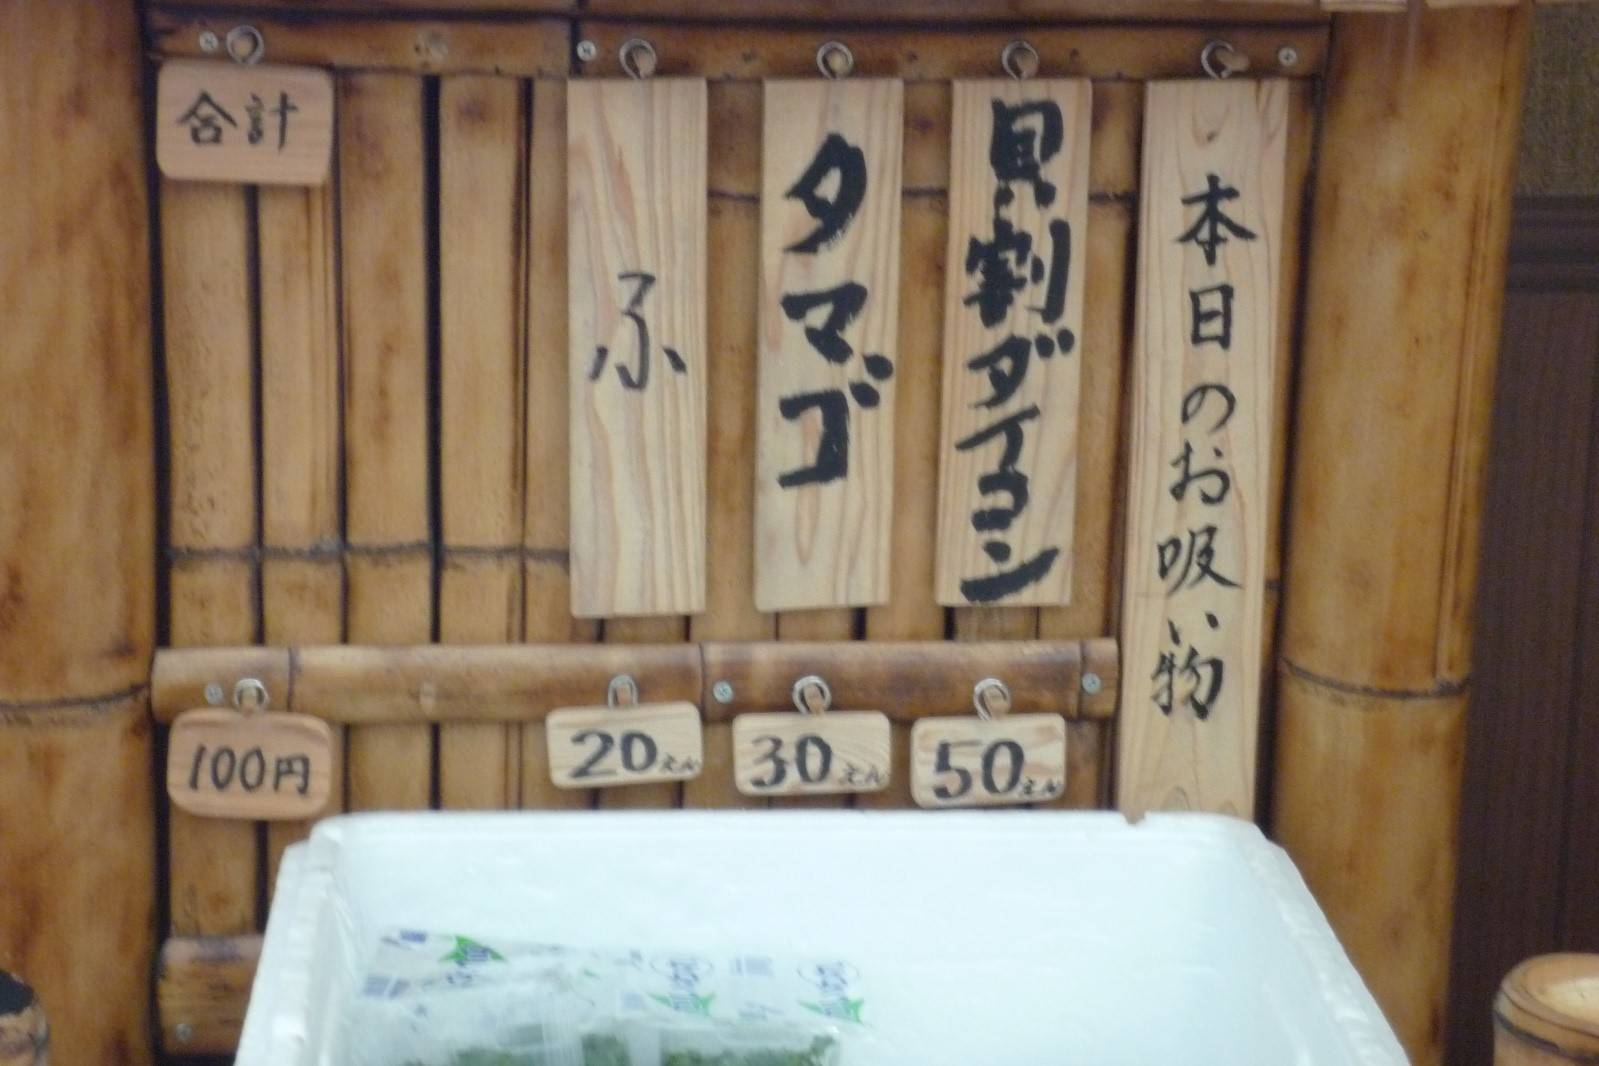 本日のお吸い物
貝割ダイコン
50えん
タマゴ
30えん
ふ
20えん
合計
100円